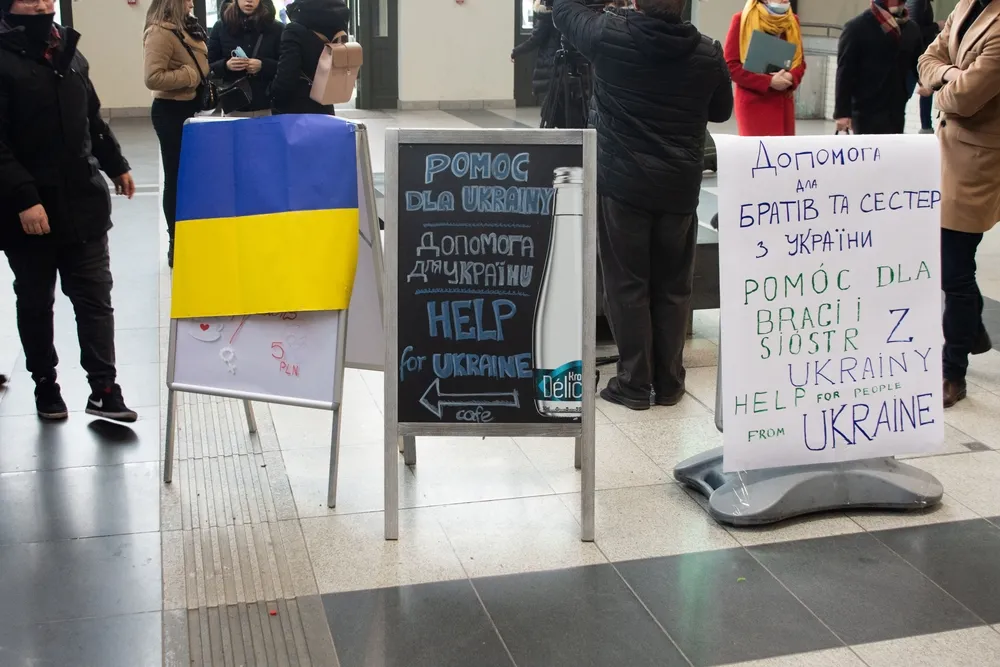 5
PLN
POMOC
DLA UKRAINY
ДОПОМОГА
ДЛЯ УКРАЇНИ
HELP
for UKRAINE
cafe
Délic
ДОПОМОГА
ДЛЯ
БРАТІВ ТА СЕСТЕР
З УКРАЇНИ
POMÓC DLA
BRACI I
SIÓSTR Z
UKRAINY
HELP FOR PEOPLE
FROM UKRAINE